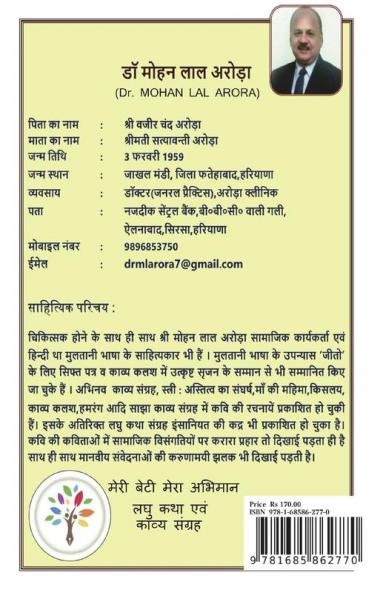 डॉ मोहन लाल अरोड़ा
(Dr. MOHAN LAL ARORA)
पिता का नाम : श्री वजीर चंद अरोड़ा
माता का नाम : श्रीमती सत्यावन्ती अरोड़ा
जन्म तिथि : 3 फरवरी 1959
जन्म स्थान : जाखल मंडी, जिला फतेहाबाद,हरियाणा
व्यवसाय : डॉक्टर(जनरल प्रैक्टिस),अरोड़ा क्लीनिक
पता : नजदीक सेंट्रल बैंक,बी०बी०सी० वाली गली,
ऐलनाबाद,सिरसा,हरियाणा
मोबाइल नंबर : 9896853750
ईमेल : drmlarora7@gmail.com
साहित्यिक परिचय :
चिकित्सक होने के साथ ही साथ श्री मोहन लाल अरोड़ा सामाजिक कार्यकर्ता एवं
हिन्दी था मुलतानी भाषा के साहित्यकार भी हैं । मुलतानी भाषा के उपन्यास 'जीतो'
के लिए सिफ्त पत्र व काव्य कलश में उत्कृष्ट सृजन के सम्मान से भी सम्मानित किए
जा चुके हैं । अभिनव काव्य संग्रह, स्त्री : अस्तित्व का संघर्ष,माँ की महिमा,किसलय,
काव्य कलश,हमरंग आदि साझा काव्य संग्रह में कवि की रचनायें प्रकाशित हो चुकी
हैं। इसके अतिरिक्त लघु कथा संग्रह इंसानियत की कद्र भी प्रकाशित हो चुका है।
कवि की कविताओं में सामाजिक विसंगतियों पर करारा प्रहार तो दिखाई पड़ता ही है
साथ ही साथ मानवीय संवेदनाओं की करुणामयी झलक भी दिखाई पड़ती है।
मेरी बेटी मेरा अभिमान
लघु कथा एवं
काव्य संग्रह
Price Rs 170.00
ISBN 978-1-68586-277-0
9 781685 862770